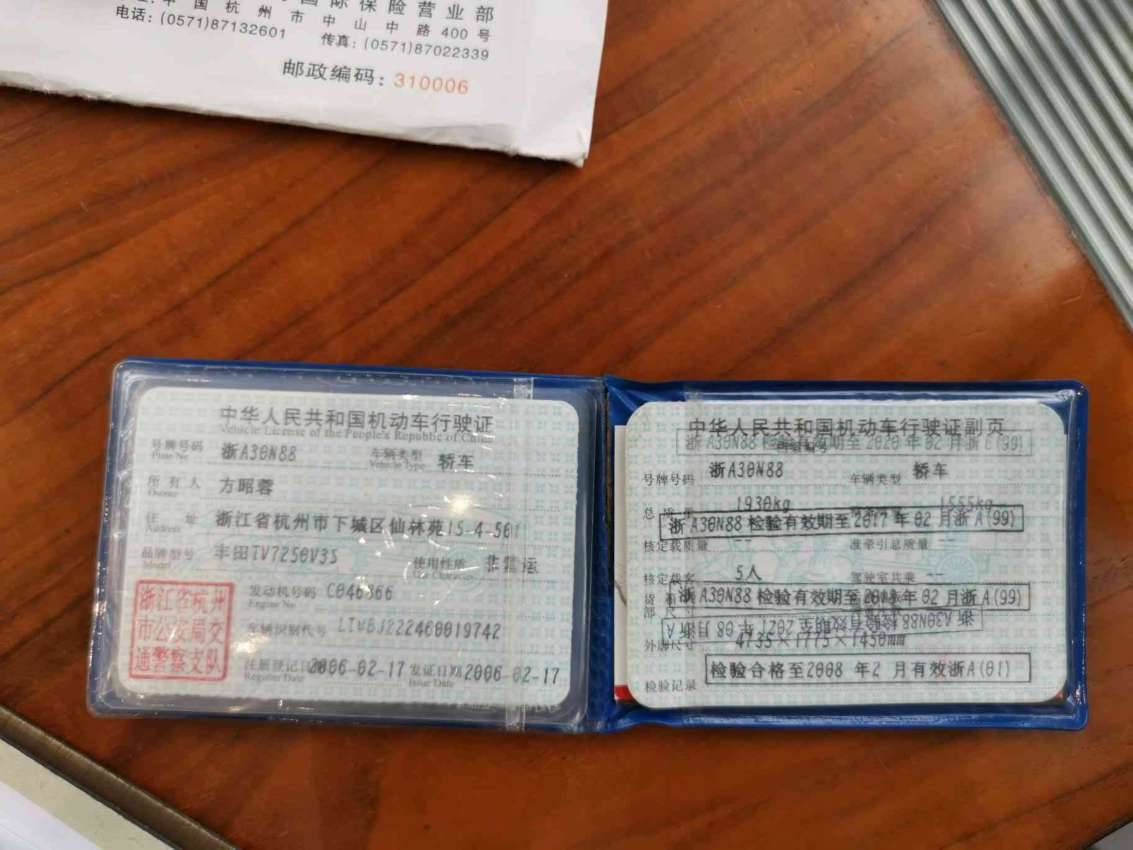 国际保险营业部
中国杭州市中山中路400号
电话:(0571)87132601 传真:(0571)87022339
邮政编码:310006
中华人民共和国机动车行驶证
Vehicle License of the People's Republic of China
号牌号码 浙A30N88 车辆类型 轿车
Plate No. Vehicle Type
所有人 方昭蓉
Owner
住址 浙江省杭州市下城区仙林苑15-4-501
Address
品牌型号 丰田TV7250V3S 使用性质 非营运
Model Use Character
发动机号码 C046866
Engine No
车辆识别代号 LTVBJ222460019742
注册登记日 2006-02-17 发证日期 2006-02-17
Register Date Issue Date
浙江省杭州
市公安局交
通警察支队
中华人民共和国机动车行驶证副页
浙A30N88检验有效期至2020年02月浙C(99)
号牌号码 浙A30N88 车辆类型 轿车
总质量 1930kg 1555kg
浙A30N88检验有效期至2017年02月浙A(99)
核定载质量 -- 准牵引总质量 --
核定载客 5人 驾驶室共乘 --
浙A30N88检验有效期至2018年02月浙A(99)
浙A30N88检验有效期至2021年08月浙A
外廓尺寸 4735×1775×1450mm
检验记录 检验合格至2008年2月有效浙A(01)